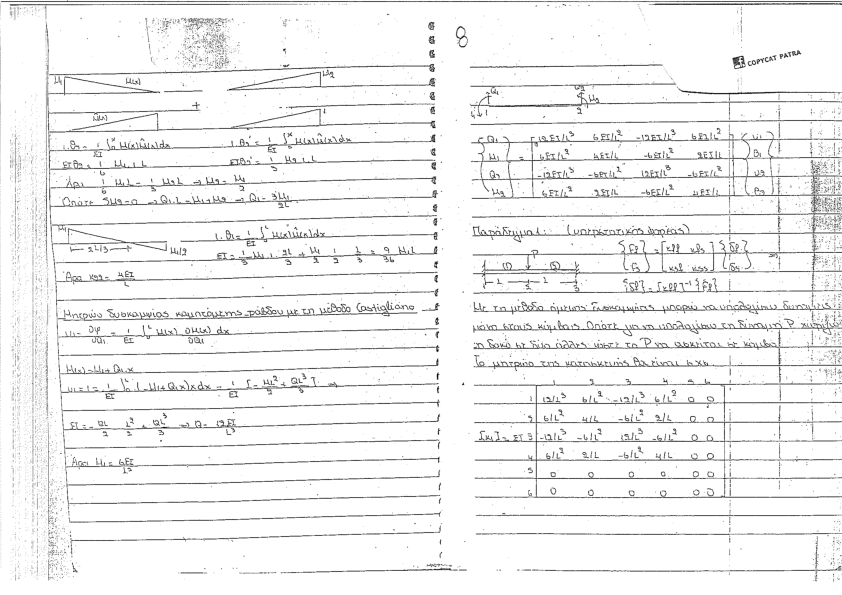 M₁ M(x) M₂
+
M̂(x) 1
1·θ₂ = 1/EI ∫₀ˣ M(x)M̂(x)dx 1·θ₂' = 1/EI ∫₀ˣ M(x)M̂(x)dx
EIθ₂ = 1/6 M₁·1·L EIθ₂' = 1/3 M₂·1·L
Άρα 1/6 M₁L = 1/3 M₂L → M₂ = M₁/2
Οπότε ΣM₂=0 → Q₁·L = M₁+M₂ → Q₁ = 3M₁/2L
M₁ 2L/3 M₁/2
1·θ₁ = 1/EI ∫₀ᴸ M(x)M̂(x)dx
EI = 1/3 M₁·1· 2L/3 + M₁/2 · 1/2 · L/3 = 9/36 M₁L
Άρα K₂₂ = 4EI/L
Μητρώο δυσκαμψίας καμπτόμενης ράβδου με τη μέθοδο Castigliano
u₁ = ∂φ/∂Q₁ = 1/EI ∫₀ᴸ M(x) ∂M(x)/∂Q₁ dx
M(x) = -M₁+Q₁·x
u₁=1= 1/EI ∫₀ᴸ (-M₁+Q₁x)x dx = 1/EI [-ML²/2 + QL³/3] ⇒
EI = -QL/2 L²/2 + QL³/3 → Q = 12EI/L³
Άρα M₁ = 6EI/L²
8
COPYCAT PATRA
Q₁ 1 2 u₂ M₂
Q₁ 12EI/L³ 6EI/L² -12EI/L³ 6EI/L² u₁
M₁ = 6EI/L² 4EI/L -6EI/L² 2EI/L θ₁
Q₂ -12EI/L³ -6EI/L² 12EI/L³ -6EI/L² u₂
M₂ 6EI/L² 2EI/L -6EI/L² 4EI/L θ₂
Παράδειγμα 1: (υπερστατικός φορέας)
P
(1) (2)
L 2 L 3
{Ff Fs} = [Kff Kfs Ksf Kss] {δf δs} ⇒
{δf} = [Kff]⁻¹ {Ff}
Με τη μέθοδο άμεσης δυσκαμψίας μπορώ να υπολογίσω δυνάμεις
μόνο στους κόμβους. Οπότε για να υπολογίσω τη δύναμη P χωρίζω
τη δοκό σε δύο άλλες ώστε το P να ασκείται σε κόμβο
Το μητρώο της κατασκευής θα είναι 6x6
1 2 3 4 5 6
1 12/L³ 6/L² -12/L³ 6/L² 0 0
2 6/L² 4/L -6/L² 2/L 0 0
[K₁] = EI 3 -12/L³ -6/L² 12/L³ -6/L² 0 0
4 6/L² 2/L -6/L² 4/L 0 0
5 0 0 0 0 0 0
6 0 0 0 0 0 0